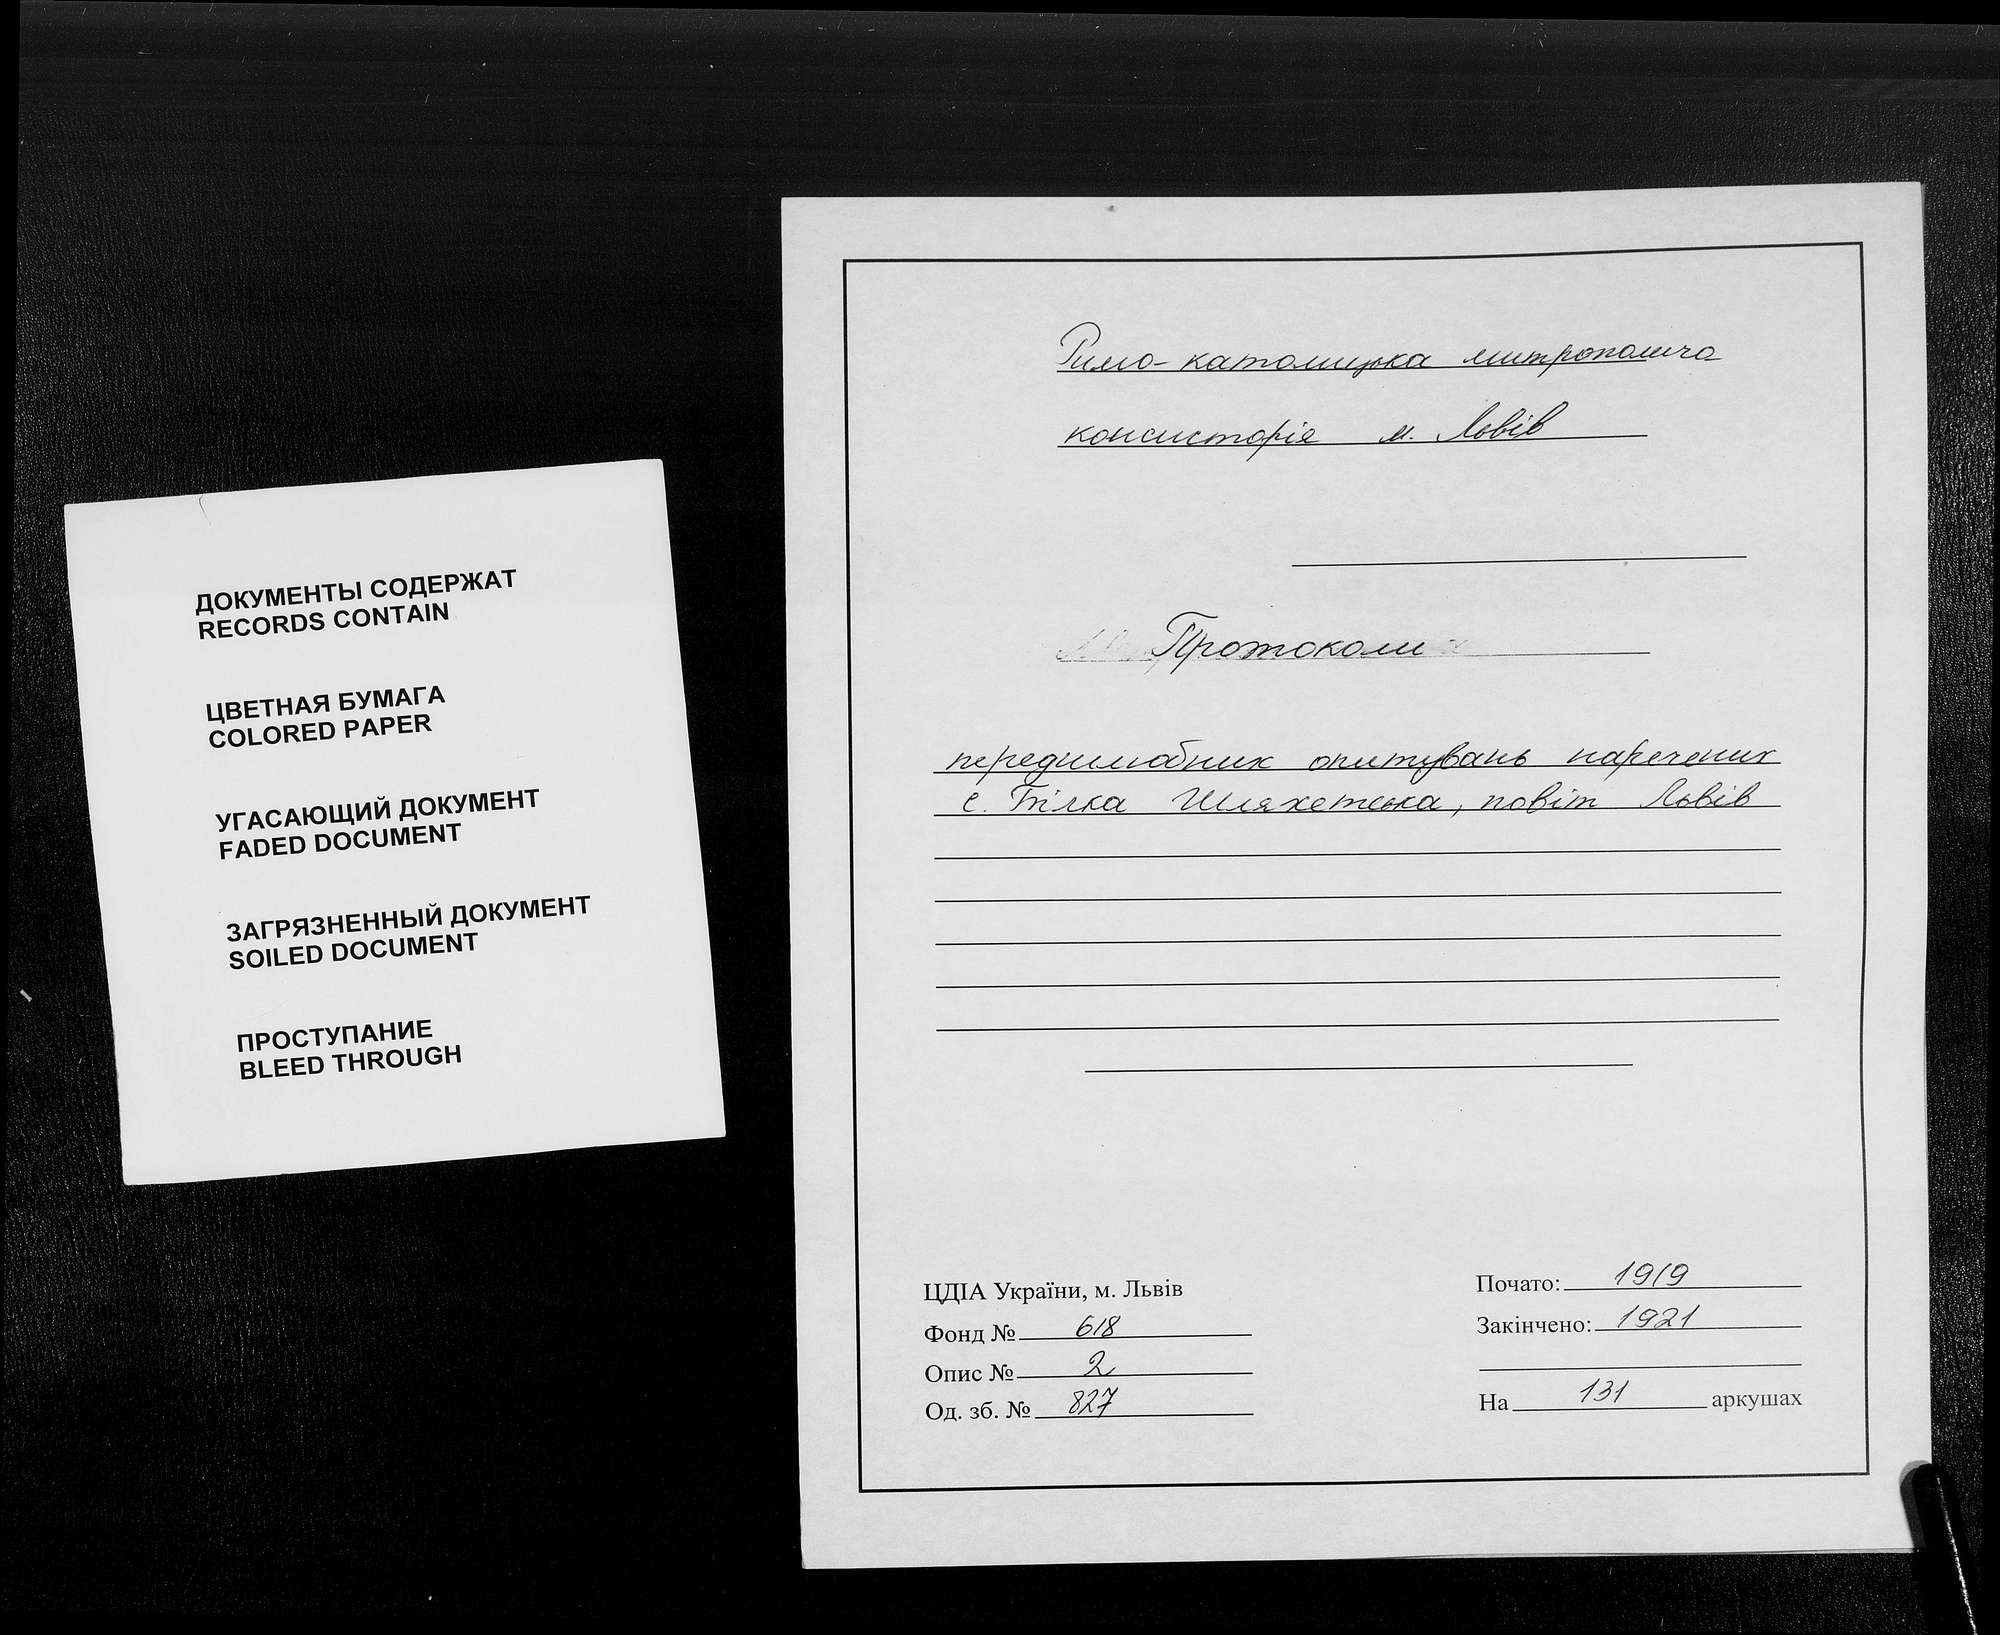 ДОКУМЕНТЫ СОДЕРЖАТ
RECORDS CONTAIN
ЦВЕТНАЯ БУМАГА
COLORED PAPER
УГАСАЮЩИЙ ДОКУМЕНТ
FADED DOCUMENT
ЗАГРЯЗНЕННЫЙ ДОКУМЕНТ
SOILED DOCUMENT
ПРОСТУПАНИЕ
BLEED THROUGH
Римо-католицька митрополича
консисторія м. Львів
Протоколи
передшлюбних опитувань наречених
с. Білка Шляхетська, повіт Львів
ЦДІА України, м. Львів
Фонд № 618
Опис № 2
Од. зб. № 827
Почато: 1919
Закінчено: 1921
На 131 аркушах